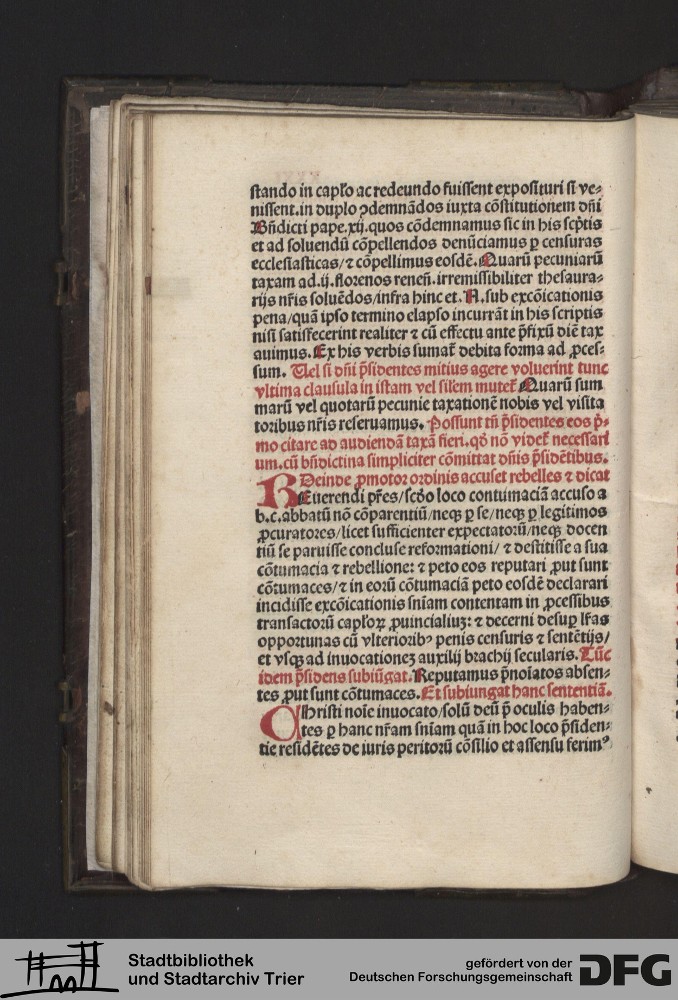 stando in capło ac redeundo fuissent exposituri si ve⸗
nissent.in duplo ꝯdemnãdos iuxta cõstitutionem dñi
Bñdicti pape.xij.quos cõdemnamus sic in his scp̃tis
et ad soluendũ cõpellendos denũciamus ꝑ censuras
ecclesiasticas/ꝛ cõpellimus eosdẽ.Quarũ pecuniarũ
taxam ad.ij.florenos reneñ.irremissibiliter thesaura⸗
rijs nr̃is soluẽdos/infra hinc et.N.sub excõicationis
pena/quã ipso termino elapso incurrãt in his scriptis
nisi satisfecerint realiter ꝛ cũ effectu ante p̃fixũ diẽ tax
auimus.Ex his verbis sumat̃ debita forma ad ꝓces⸗
sum. Uel si dñi p̃sidentes mitius agere voluerint tunc
vltima clausula in istam vel sil̃em mutet̃ Quarũ sum
marũ vel quotarũ pecunie taxationẽ nobis vel visita
toribus nr̃is reseruamus. Possunt tñ p̃sidentes eos p̃⸗
mo citare ad audiendã taxã fieri.qd̃ nõ videt̃ necessari
um.cũ bñdictina simpliciter cõmittat dñis p̃sidẽtibus.
Deinde ꝓmotor ordinis accuset rebelles ꝛ dicat
REuerendi pr̃es/scd̃o loco contumaciã accuso a
b.c.abbatũ nõ cõparentiũ/neqꝫ ꝑ se/neqꝫ ꝑ legitimos
ꝓcuratores/licet sufficienter expectatorũ/neqꝫ docen
tiũ se paruisse concluse reformationi/ ꝛ destitisse a sua
cõtumacia ꝛ rebellione: ꝛ peto eos reputari ꝓut sunt
cõtumaces/ꝛ in eorũ cõtumaciã peto eosdẽ declarari
incidisse excõicationis sniam contentam in ꝓcessibus
transactorũ capłoꝝ ꝓuincialiuꝫ: ꝛ decerni desuꝑ lr̃as
opportunas cũ vlterioribꝰ penis censuris ꝛ sentẽtijs/
et vsqꝫ ad inuocationeꝫ auxilij brachij secularis. Tũc
idem p̃sidens subiũgat.Reputamus p̃noĩatos absen⸗
tes ꝓut sunt cõtumaces. Et subiungat hanc sententiã.
CHristi noĩe inuocato/solũ deũ p̃ oculis haben⸗
tes ꝑ hanc nr̃am sniam quã in hoc loco p̃siden⸗
tie residẽtes de iuris peritorũ cõsilio et assensu ferimꝰ
Stadtbibliothek
und Stadtarchiv Trier
gefördert von der
Deutschen Forschungsgemeinschaft
DFG